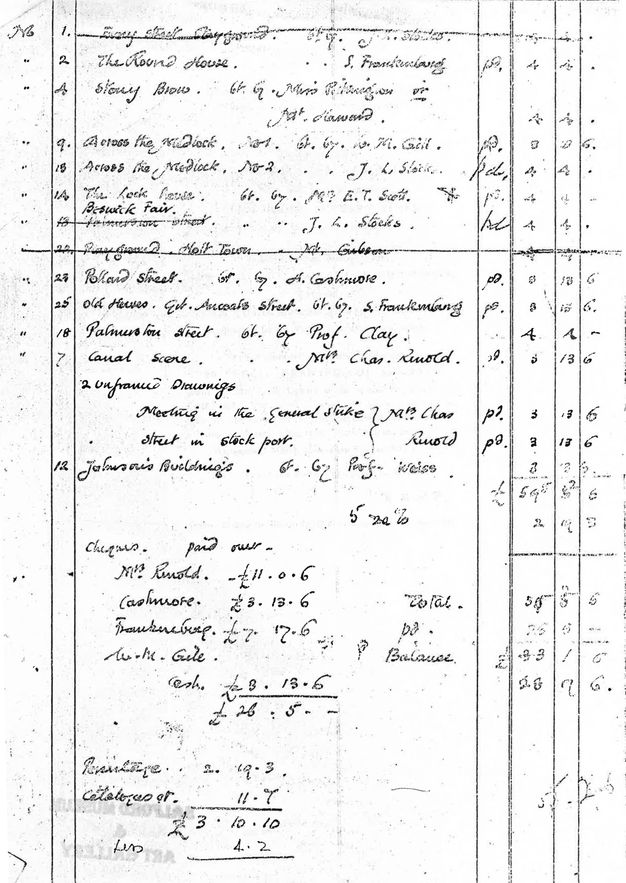 No 1. Every Street Playground. bt. by. J. L. Stocks. 4 4 .
" 2 The Round House. . . S. Frankenburg pd. 4 4 .
" 4 Stony Brow. bt. by. Miss Pilkington or
Mr. Haward. 4 4 .
" 9. Across the Medlock. No 1. bt. by. W. M. Gile. pd. 3 3 6.
" 13 Across the Medlock. No 2. . . J. L. Stocks. pd. 4 4 .
" 14 The Lock house. bt. by. Mrs E. T. Scott. pd. 4 4 -
Beswick Fair.
" 13 Palmerston Street. . " . . J. L. Stocks. pd 4 4 .
22. Playground. Holt Town. . Mr. Gibson 4 4
" 23 Pollard Street. bt. by. H. Cashmore. pd. 3 13 6
" 25 Old Houses. Gt. Ancoats Street. bt. by. S. Frankenburg pd. 3 13 6.
" 18 Palmerston Street. bt. by Prof. Clay. 4 4 -
" 7 Canal Scene. . . Mrs Chas. Renold. pd. 3 13 6
2 Unframed Drawings
Meeting in the General Strike } Mrs Chas pd. 3 13 6
Street in Stockport. } Renold pd. 3 13 6
12 Johnson's Buildings. bt. by Prof. Weiss. 3 3
£ 6
5 %
2 9 3
Cheques. paid over -
Mrs Renold. - £11. 0. 6
Cashmore. £3. 13. 6 Total. 6
Frankenburg. £7. 17. 6 pd.
W. M. Gile. ? Balance. £ 33 1 6
Cash. £3. 13. 6 28 7 6.
£ 26. 5. - -
Percentage. . 2. 19. 3.
Catalogues gt. 11. 7
£ 3. 10. 10
Less 4. 2
SALFORD MUSEUM
&
ART GALLERY